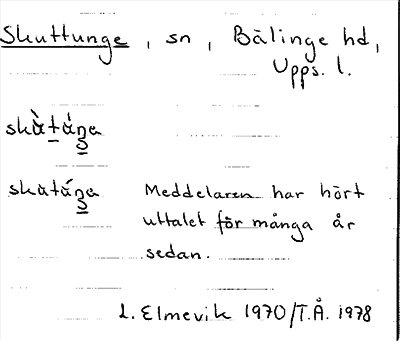 Skuttunge, sn, Bälinge hd,
Upps. l.
skàtáŋa
skatáŋa Meddelaren har hört
uttalet för många år
sedan.
L. Elmevik 1970/T.Å. 1978